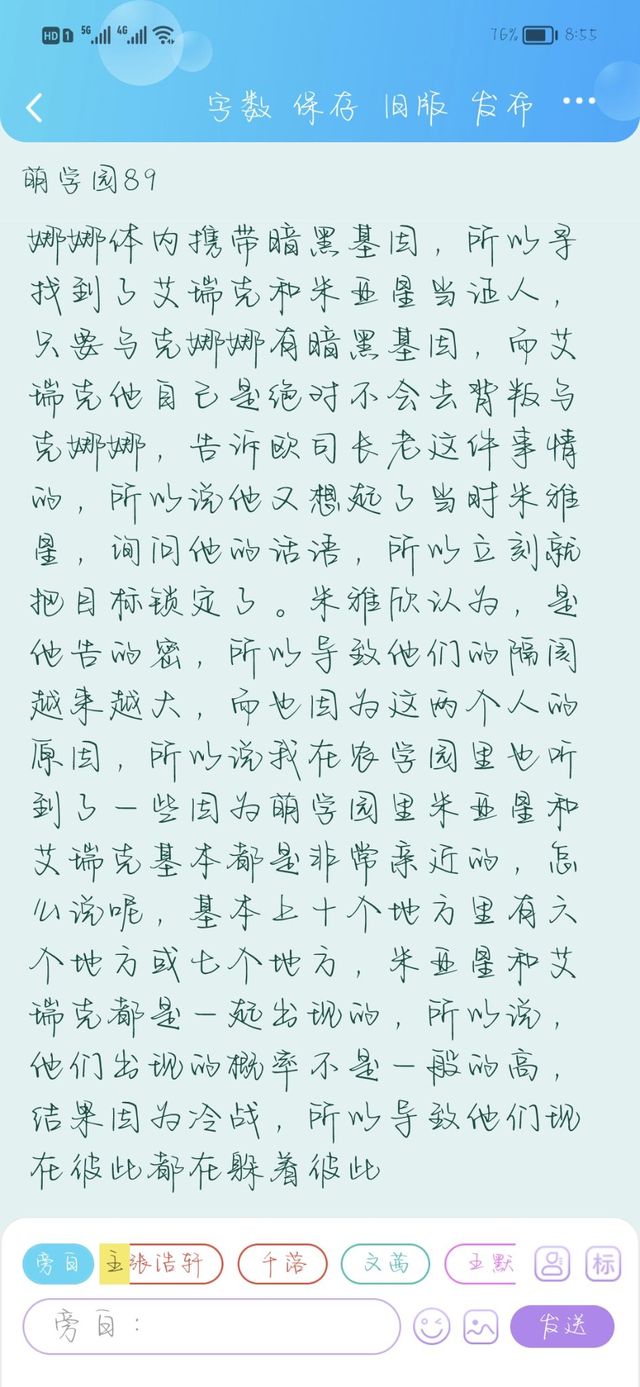 HD 1 5G 4G 76% 8:55
字数 保存 旧版 发布 ...
萌学园89
娜娜体内携带暗黑基因，所以寻
找到了艾瑞克和米亚星当证人，
只要乌克娜娜有暗黑基因，而艾
瑞克他自己是绝对不会去背叛乌
克娜娜，告诉欧司长老这件事情
的，所以说他又想起了当时米雅
星，询问他的话语，所以立刻就
把目标锁定了。米雅欣认为，是
他告的密，所以导致他们的隔阂
越来越大，而也因为这两个人的
原因，所以说我在农学园里也听
到了一些因为萌学园里米亚星和
艾瑞克基本都是非常亲近的，怎
么说呢，基本上十个地方里有六
个地方或七个地方，米亚星和艾
瑞克都是一起出现的，所以说，
他们出现的概率不是一般的高，
结果因为冷战，所以导致他们现
在彼此都在躲着彼此
旁白 主 张浩轩 千落 文茜 王默 标
旁白：
发送